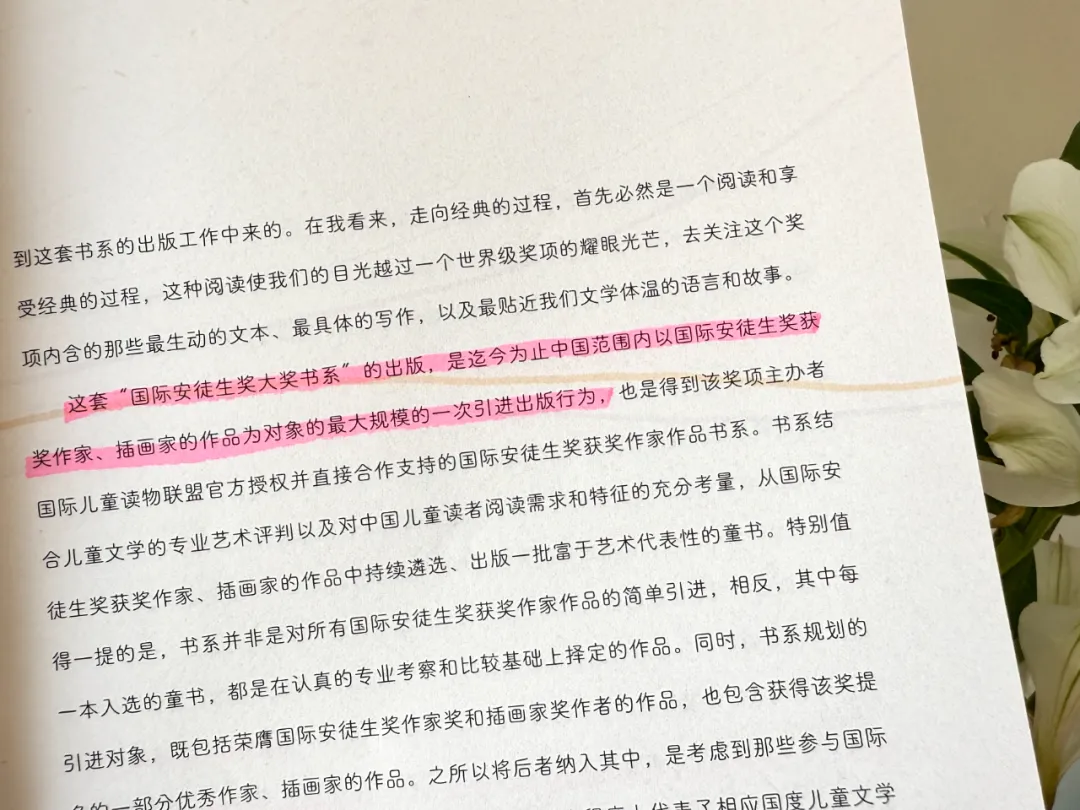 到这套书系的出版工作中来的。在我看来，走向经典的过程，首先必然是一个阅读和享
受经典的过程，这种阅读使我们的目光越过一个世界级奖项的耀眼光芒，去关注这个奖
项内含的那些最生动的文本、最具体的写作，以及最贴近我们文学体温的语言和故事。
这套“国际安徒生奖大奖书系”的出版，是迄今为止中国范围内以国际安徒生奖获
奖作家、插画家的作品为对象的最大规模的一次引进出版行为，也是得到该奖项主办者
国际儿童读物联盟官方授权并直接合作支持的国际安徒生奖获奖作家作品书系。书系结
合儿童文学的专业艺术评判以及对中国儿童读者阅读需求和特征的充分考量，从国际安
徒生奖获奖作家、插画家的作品中持续遴选、出版一批富于艺术代表性的童书。特别值
得一提的是，书系并非是对所有国际安徒生奖获奖作家作品的简单引进，相反，其中每
一本入选的童书，都是在认真的专业考察和比较基础上择定的作品。同时，书系规划的
引进对象，既包括荣膺国际安徒生奖作家奖和插画家奖作者的作品，也包含获得该奖提
名的一部分优秀作家、插画家的作品。之所以将后者纳入其中，是考虑到那些参与国际
程度上代表了相应国度儿童文学